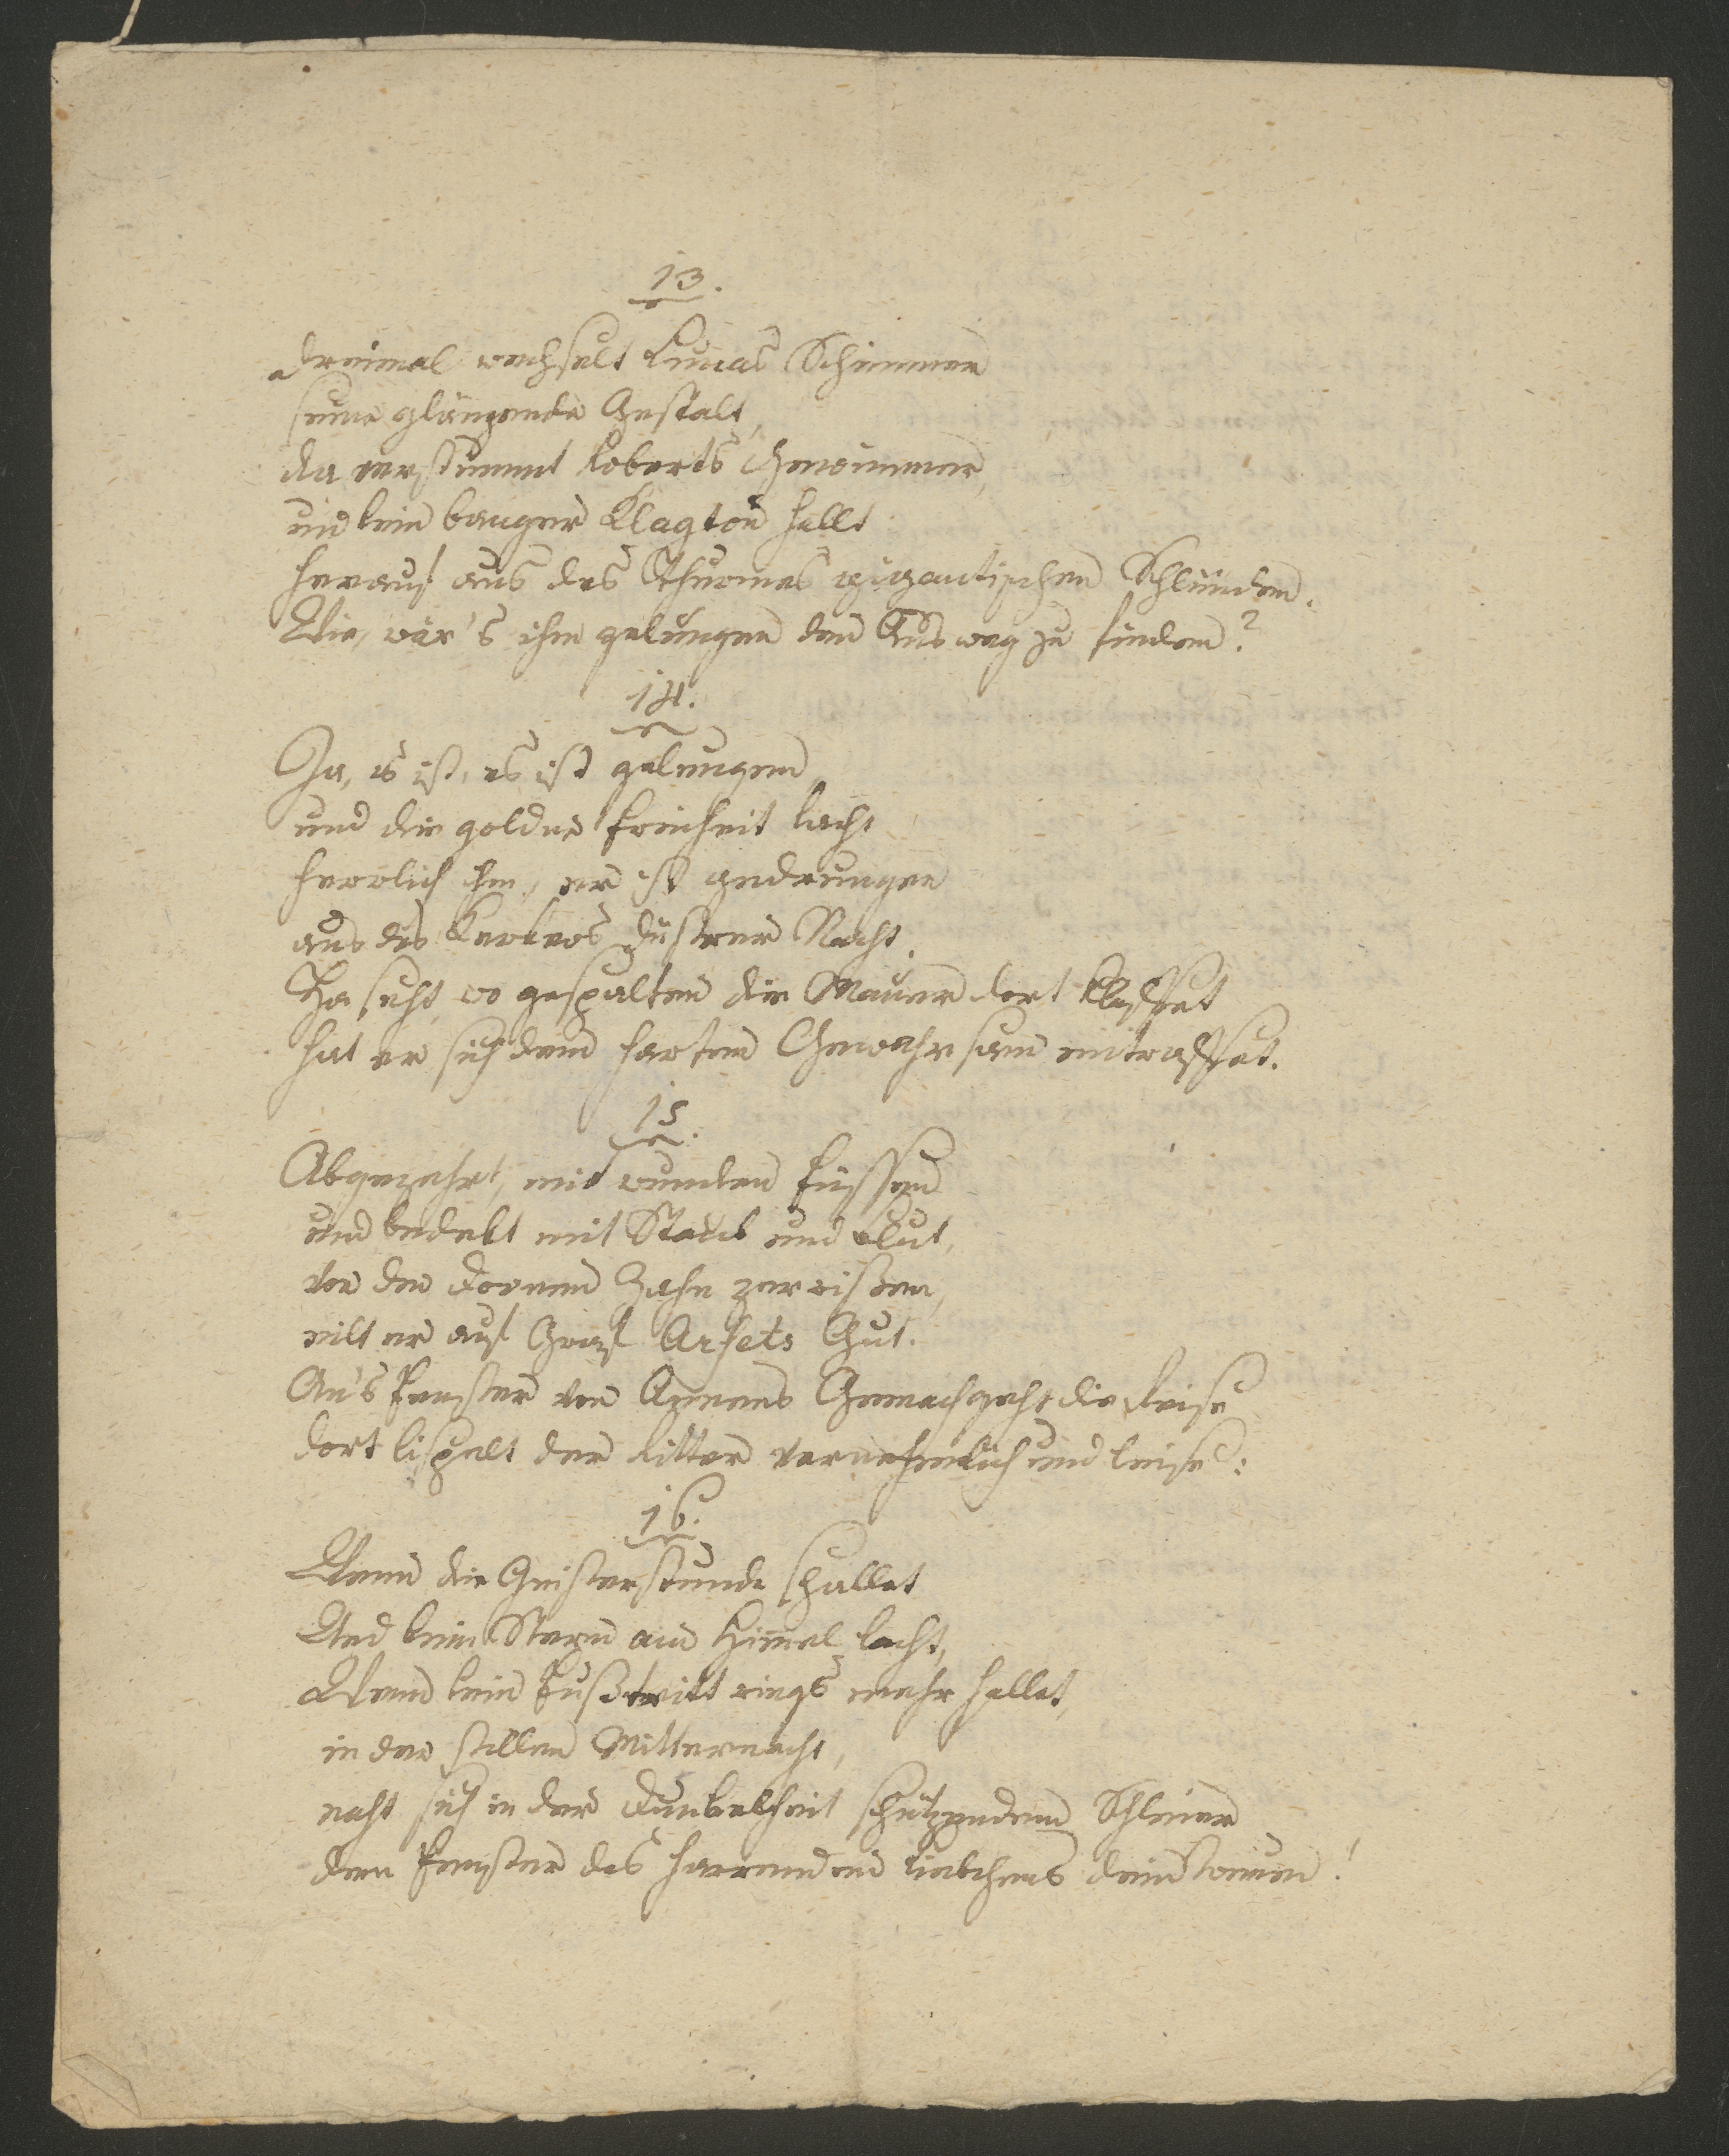 13.
Dreimal wechselt Lunas Schimmer
seine glänzende Gestalt,
da verstummt Roberts Gewimmer,
und kein banger Klagton hallt
herauf aus des Thurmes gigantischen Schlünden.
Wie, wär's ihm gelungen den Ausweg zu finden?
14.
Ja, es ist, es ist gelungen,
und die goldne Freiheit lacht
herrlich ihm, er ist gedrungen
aus des Kerkers düstrer Nacht.
Ha seht, wo gespalten die Mauer dort klaffet
hat er sich dem harten Gewahrsam entraffet.
15.
Abgezehrt, mit wunden Füssen
und bedekt mit Staub und Blut,
von den Dornen Zahn zerrißen,
eilt er auf Graf Arsets Gut.
An's Fenster von Agnens Gemach geht die Reise
dort lispelt der Ritter vernehmlich und leise:
16.
Wenn die Geisterstunde schallet
Und kein Stern am Himel lacht,
Wenn kein Fußtritt rings mehr hallet,
in der stillen Mitternacht,
naht sich in der Dunkelheit schützendem Schleier
dem Fenster des harrenden Liebchens dein Treuer!